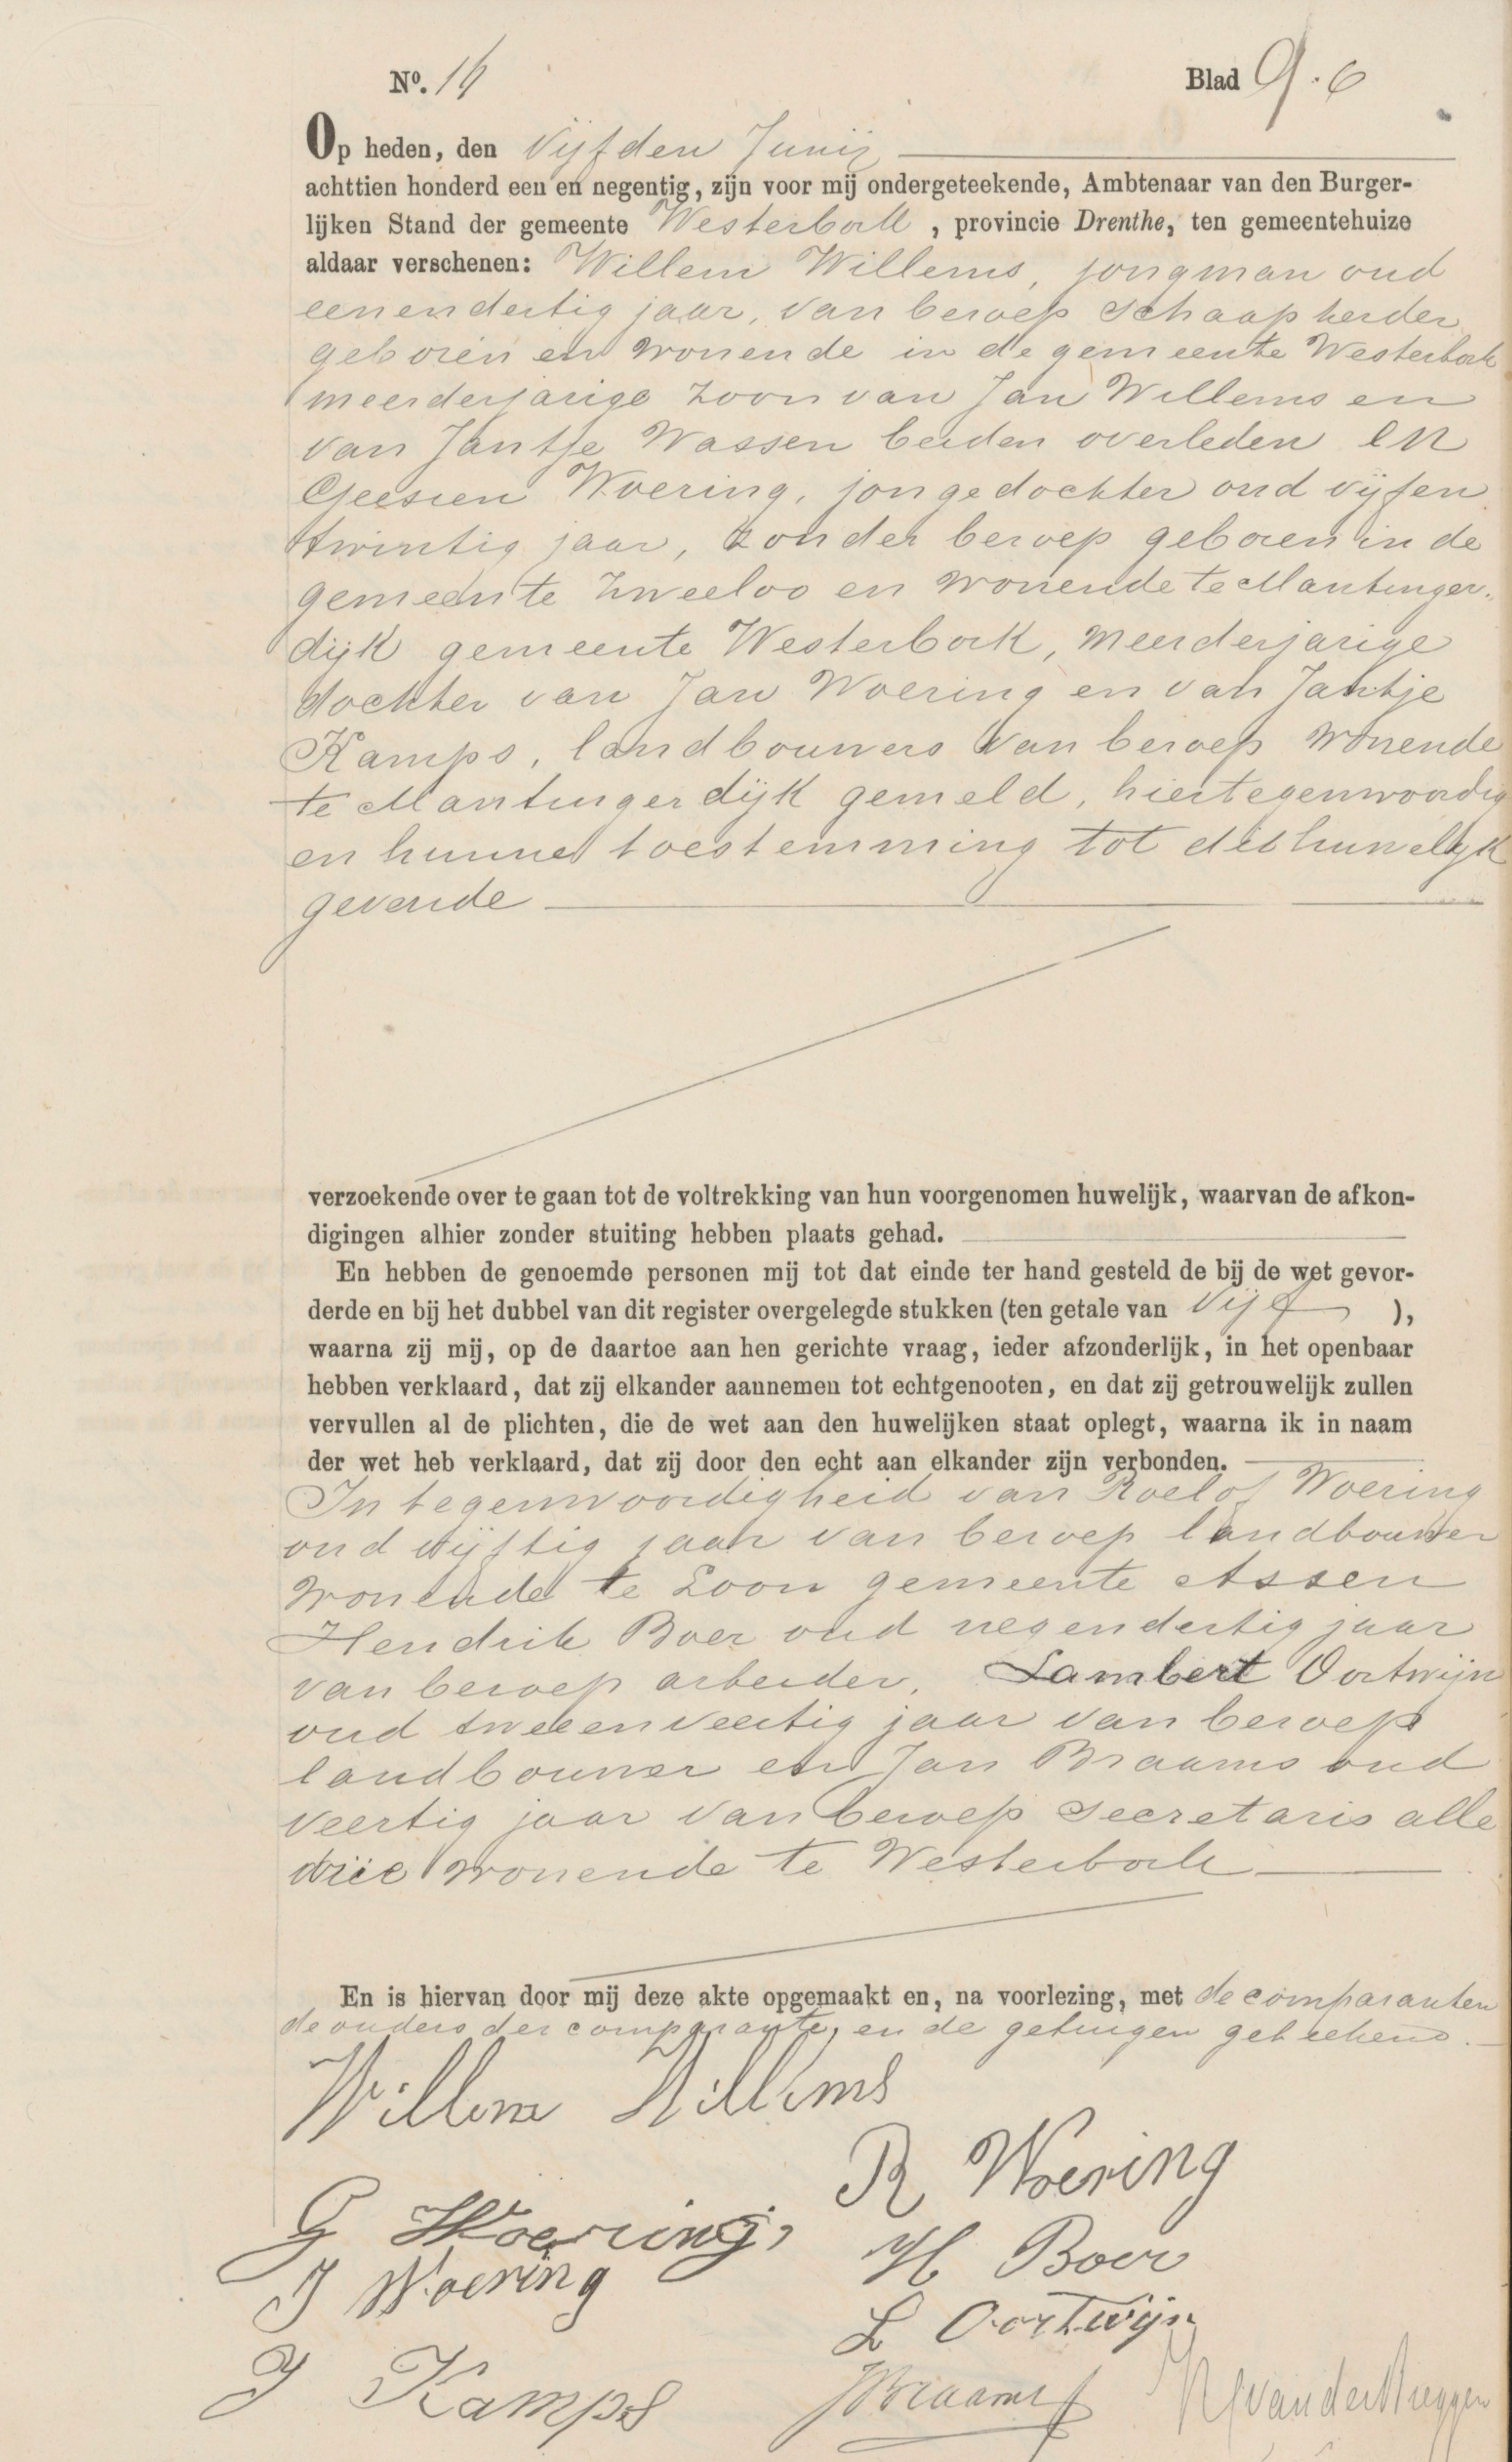 Nº. 14 Blad 9.6
Op heden, den Vijfden Junij
achttien honderd een en negentig, zijn voor mij ondergeteekende, Ambtenaar van den Burger-
lijken Stand der gemeente Westerbork, provincie Drenthe, ten gemeentehuize
aldaar verschenen: Willem Willems, jongman oud
eenendertig jaar, van beroep Schaapherder
geboren en wonende in de gemeente Westerbork
meerderjarige zoon van Jan Willems en
van Jantje Wassen beiden overleden en
Geesien Woering, jongedochter oud vijfen
twintig jaar, zonder beroep geboren in de
gemeente Zweeloo en wonende te Mantinger-
dijk gemeente Westerbork, meerderjarige
dochter van Jan Woering en van Jantje
Kamps, landbouwers van beroep wonende
te Mantingerdijk gemeld, hiertegenwoordig
en hunne toestemming tot dit huwelijk
gevende
verzoekende over te gaan tot de voltrekking van hun voorgenomen huwelijk, waarvan de afkon-
digingen alhier zonder stuiting hebben plaats gehad.
En hebben de genoemde personen mij tot dat einde ter hand gesteld de bij de wet gevor-
derde en bij het dubbel van dit register overgelegde stukken (ten getale van Vijf),
waarna zij mij, op de daartoe aan hen gerichte vraag, ieder afzonderlijk, in het openbaar
hebben verklaard, dat zij elkander aannemen tot echtgenooten, en dat zij getrouwelijk zullen
vervullen al de plichten, die de wet aan den huwelijken staat oplegt, waarna ik in naam
der wet heb verklaard, dat zij door den echt aan elkander zijn verbonden.
In tegenwoordigheid van Roelof Woering
oud vijftig jaar van beroep landbouwer
wonende te Loon gemeente Assen
Hendrik Boer oud negendertig jaar
van beroep arbeider, Lambert Oortwijn
oud tweeenveertig jaar van beroep
landbouwer en Jan Braams oud
veertig jaar van beroep secretaris alle
drie wonende te Westerbork
En is hiervan door mij deze akte opgemaakt en, na voorlezing, met de comparanten
de ouders der comparante, en de getuigen geteekend.
Willem Willems
R Woering
G Woering,
H Boer
J Woering
L Oortwijn
J Kamps
JBraams
vanderBruggen